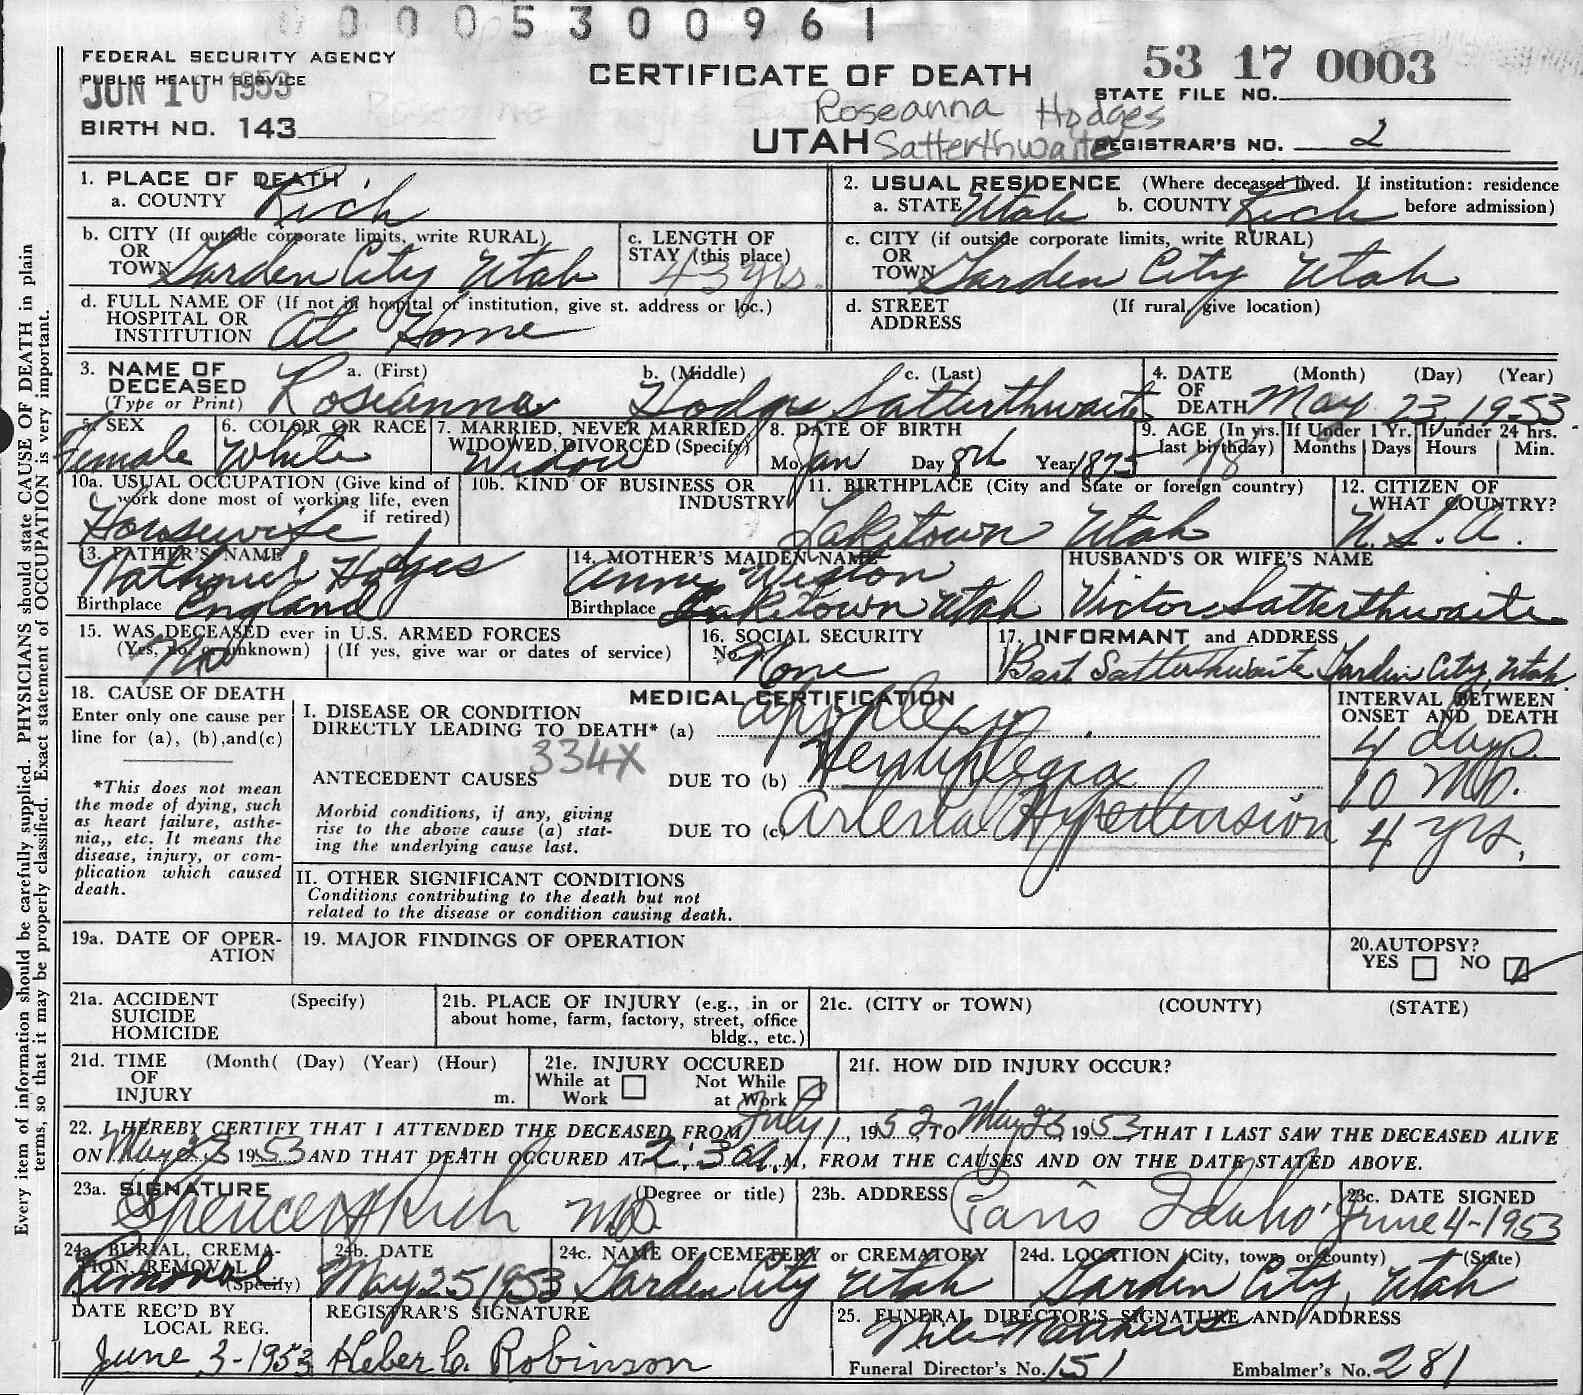 0005300961
FEDERAL SECURITY AGENCY
PUBLIC HEALTH SERVICE
JUN 10 1953
BIRTH NO. 143
CERTIFICATE OF DEATH
UTAH
Roseanna Hodges
Satterthwaite
53 17 0003
STATE FILE NO.
REGISTRAR'S NO. 2
Every item of information should be carefully supplied. PHYSICIANS should state CAUSE OF DEATH in plain
terms, so that it may be properly classified. Exact statement of OCCUPATION is very important.
1. PLACE OF DEATH
a. COUNTY Rich
2. USUAL RESIDENCE (Where deceased lived. If institution: residence
a. STATE Utah b. COUNTY Rich before admission)
b. CITY (If outside corporate limits, write RURAL)
OR
TOWN Garden City Utah
c. LENGTH OF
STAY (this place)
43 yrs.
c. CITY (if outside corporate limits, write RURAL)
OR
TOWN Garden City Utah
d. FULL NAME OF (If not in hospital or institution, give st. address or loc.)
HOSPITAL OR
INSTITUTION At Home
d. STREET (If rural, give location)
ADDRESS
3. NAME OF DECEASED
(Type or Print)
a. (First) b. (Middle) c. (Last)
Roseanna Hodges Satterthwaite
4. DATE OF DEATH (Month) (Day) (Year)
May 23 1953
5. SEX
Female
6. COLOR OR RACE
White
7. MARRIED, NEVER MARRIED,
WIDOWED, DIVORCED (Specify)
Widow
8. DATE OF BIRTH
Mo. Jan Day 8th Year 1875
9. AGE (In yrs.
last birthday) 78
If Under 1 Yr.
Months Days
If under 24 hrs.
Hours Min.
10a. USUAL OCCUPATION (Give kind of
work done most of working life, even
if retired)
Housewife
10b. KIND OF BUSINESS OR
INDUSTRY
11. BIRTHPLACE (City and State or foreign country)
Laketown Utah
12. CITIZEN OF
WHAT COUNTRY?
U.S.A.
13. FATHER'S NAME
Nathaniel Hodges
Birthplace England
14. MOTHER'S MAIDEN NAME
Anna Weston
Birthplace Laketown Utah
HUSBAND'S OR WIFE'S NAME
Victor Satterthwaite
15. WAS DECEASED ever in U.S. ARMED FORCES
(Yes, no, or unknown) (If yes, give war or dates of service)
No
16. SOCIAL SECURITY
No. None
17. INFORMANT and ADDRESS
Bart Satterthwaite Garden City, Utah
18. CAUSE OF DEATH
Enter only one cause per
line for (a), (b), and (c)
*This does not mean
the mode of dying, such
as heart failure, asthe-
nia,, etc. It means the
disease, injury, or com-
plication which caused
death.
MEDICAL CERTIFICATION
I. DISEASE OR CONDITION
DIRECTLY LEADING TO DEATH* (a) Apoplexy
334X
ANTECEDENT CAUSES DUE TO (b) Hemiplegia
Morbid conditions, if any, giving
rise to the above cause (a) stat-
ing the underlying cause last.
DUE TO (c) Arterial Hypertension
INTERVAL BETWEEN
ONSET AND DEATH
4 days.
10 Mo.
4 yrs.
II. OTHER SIGNIFICANT CONDITIONS
Conditions contributing to the death but not
related to the disease or condition causing death.
19a. DATE OF OPER-
ATION
19. MAJOR FINDINGS OF OPERATION
20. AUTOPSY?
YES NO
21a. ACCIDENT (Specify)
SUICIDE
HOMICIDE
21b. PLACE OF INJURY (e.g., in or
about home, farm, factory, street, office
bldg., etc.)
21c. (CITY or TOWN) (COUNTY) (STATE)
21d. TIME (Month( (Day) (Year) (Hour)
OF
INJURY m.
21e. INJURY OCCURED
While at Work Not While at Work
21f. HOW DID INJURY OCCUR?
22. I HEREBY CERTIFY THAT I ATTENDED THE DECEASED FROM July 1, 1952, TO May 23, 1953 THAT I LAST SAW THE DECEASED ALIVE
ON May 23 1953 AND THAT DEATH OCCURED AT 2:30 A.M, FROM THE CAUSES AND ON THE DATE STATED ABOVE.
23a. SIGNATURE (Degree or title)
Spencer H Rich MD.
23b. ADDRESS Paris Idaho
23c. DATE SIGNED
June 4-1953
24a. BURIAL, CREMA-
TION, REMOVAL
(Specify)
Removal
24b. DATE
May 25 1953
24c. NAME OF CEMETERY or CREMATORY
Garden City Utah
24d. LOCATION (City, town, or county) (State)
Garden City, Utah
DATE REC'D BY
LOCAL REG.
June 3-1953
REGISTRAR'S SIGNATURE
Heber C. Robinson
25. FUNERAL DIRECTOR'S SIGNATURE AND ADDRESS
Matthews
Funeral Director's No. 151 Embalmer's No. 281